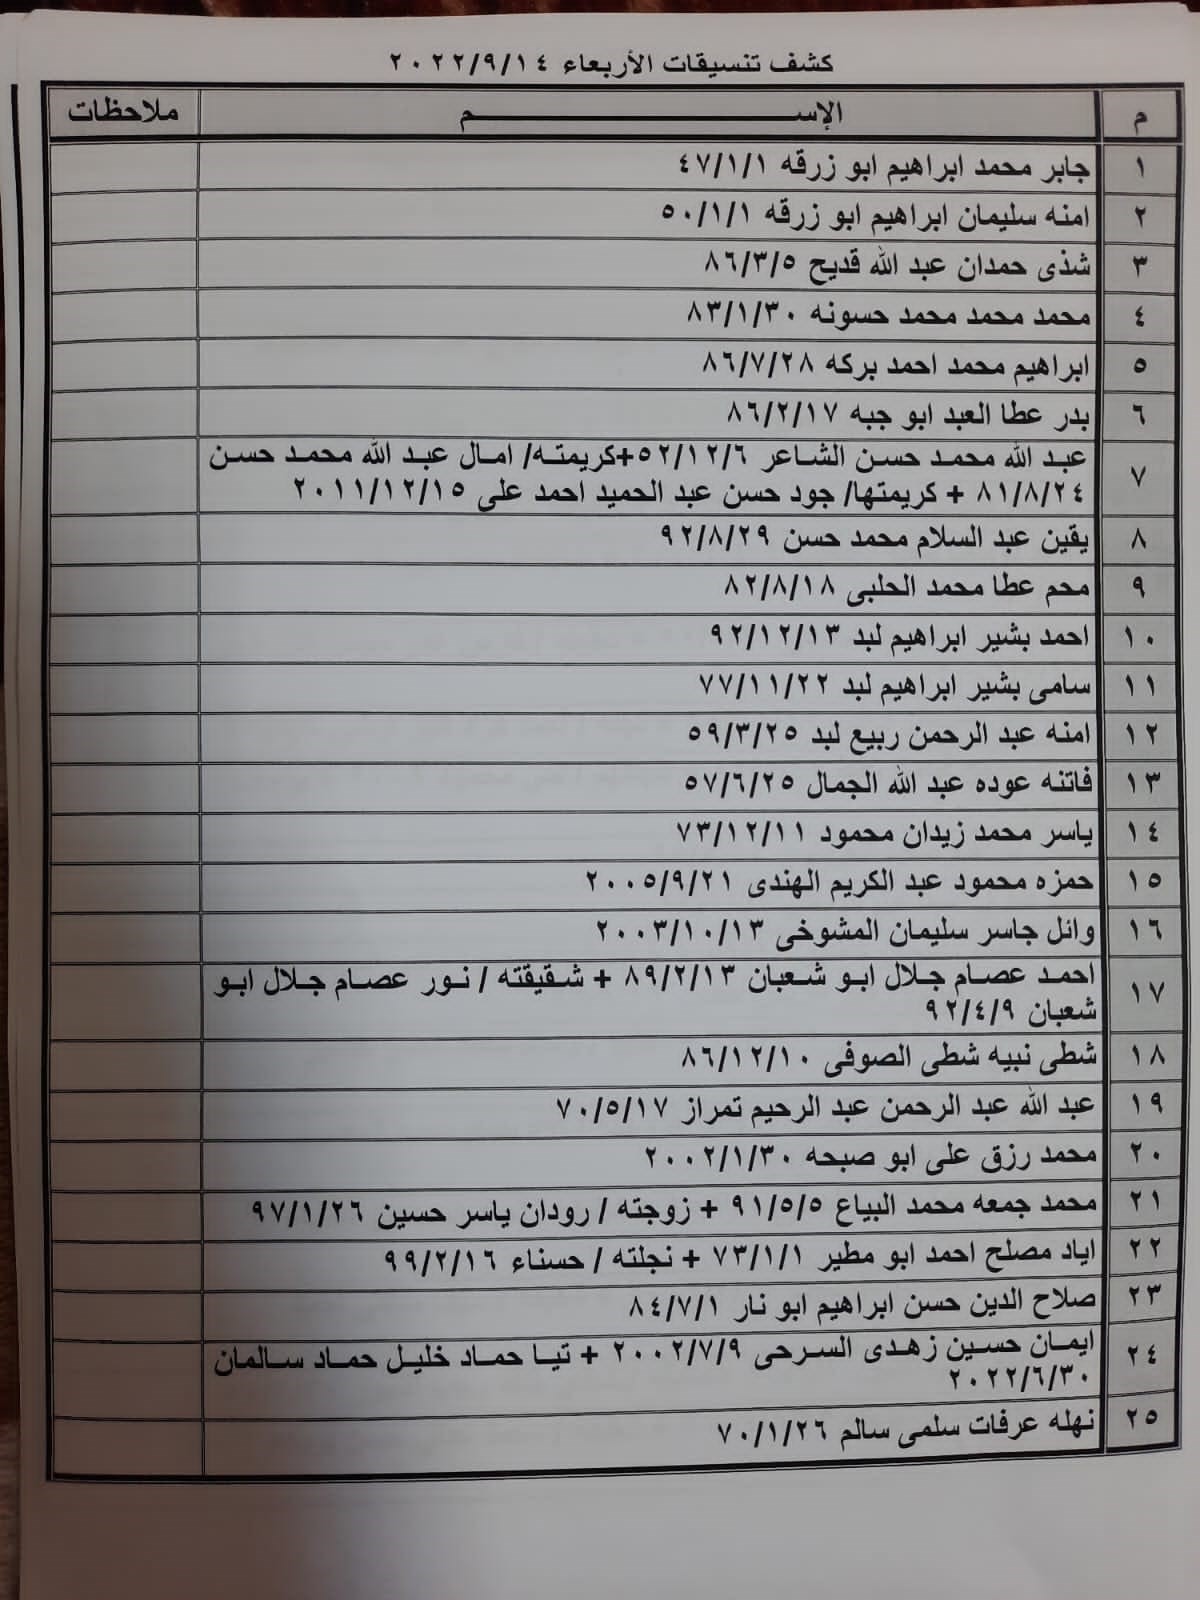 كشف تنسيقات الأربعاء ٢٠٢٢/٩/١٤
م الإســـــــــم ملاحظات
١ جابر محمد ابراهيم ابو زرقه ٤٧/١/١
٢ امنه سليمان ابراهيم ابو زرقه ٥٠/١/١
٣ شذى حمدان عبد الله قديح ٨٦/٣/٥
٤ محمد محمد محمد حسونه ٨٣/١/٣٠
٥ ابراهيم محمد احمد بركه ٨٦/٧/٢٨
٦ بدر عطا العبد ابو جبه ٨٦/٢/١٧
٧ عبد الله محمد حسن الشاعر ٥٢/١٢/٦+كريمته/ امال عبد الله محمد حسن
٨١/٨/٢٤ + كريمتها/ جود حسن عبد الحميد احمد على ٢٠١١/١٢/١٥
٨ يقين عبد السلام محمد حسن ٩٢/٨/٢٩
٩ محم عطا محمد الحلبى ٨٢/٨/١٨
١٠ احمد بشير ابراهيم لبد ٩٢/١٢/١٣
١١ سامى بشير ابراهيم لبد ٧٧/١١/٢٢
١٢ امنه عبد الرحمن ربيع لبد ٥٩/٣/٢٥
١٣ فاتنه عوده عبد الله الجمال ٥٧/٦/٢٥
١٤ ياسر محمد زيدان محمود ٧٣/١٢/١١
١٥ حمزه محمود عبد الكريم الهندى ٢٠٠٥/٩/٢١
١٦ وائل جاسر سليمان المشوخى ٢٠٠٣/١٠/١٣
١٧ احمد عصام جلال ابو شعبان ٨٩/٢/١٣ + شقيقته / نور عصام جلال ابو
شعبان ٩٢/٤/٩
١٨ شطى نبيه شطى الصوفى ٨٦/١٢/١٠
١٩ عبد الله عبد الرحمن عبد الرحيم تمراز ٧٠/٥/١٧
٢٠ محمد رزق على ابو صبحه ٢٠٠٢/١/٣٠
٢١ محمد جمعه محمد البياع ٩١/٥/٥ + زوجته / رودان ياسر حسين ٩٧/١/٢٦
٢٢ اياد مصلح احمد ابو مطير ٧٣/١/١ + نجلته / حسناء ٩٩/٢/١٦
٢٣ صلاح الدين حسن ابراهيم ابو نار ٨٤/٧/١
٢٤ ايمان حسين زهدى السرحى ٢٠٠٢/٧/٩ + تيا حماد خليل حماد سالمان
٢٠٢٢/٦/٣٠
٢٥ نهله عرفات سلمى سالم ٧٠/١/٢٦